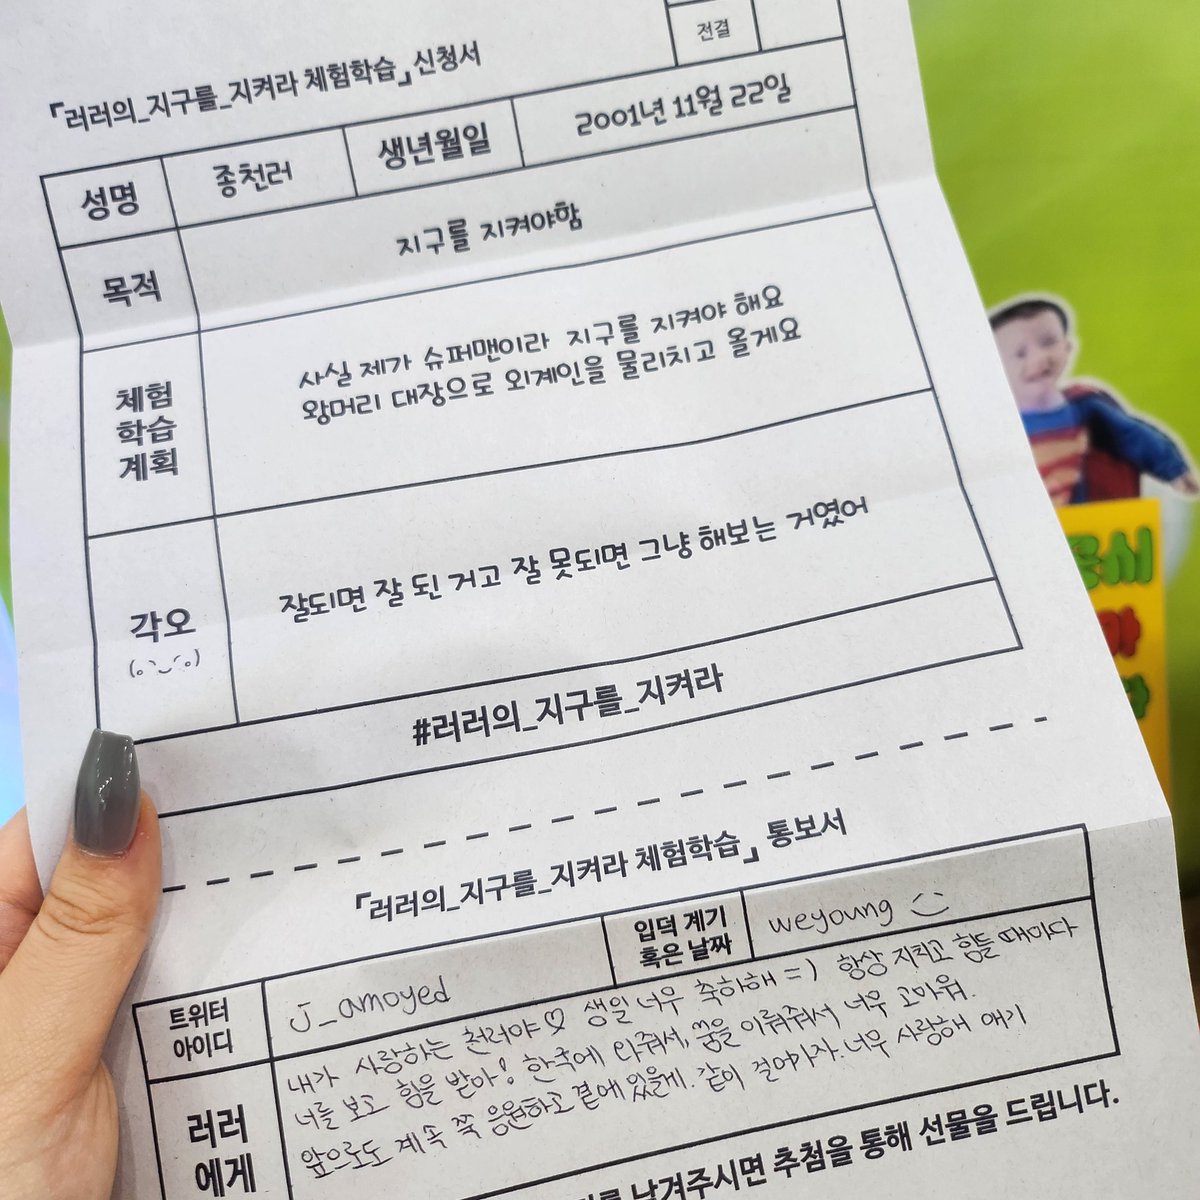 전결
「러러의_지구를_지켜라 체험학습」 신청서
성명 종천러 생년월일 2001년 11월 22일
목적 지구를 지켜야함
체험
학습
계획
사실 제가 슈퍼맨이라 지구를 지켜야 해요
왕머리 대장으로 외계인을 물리치고 올게요
각오
잘되면 잘 된 거고 잘 못되면 그냥 해보는 거였어
#러러의_지구를_지켜라
「러러의_지구를_지켜라 체험학습」 통보서
트위터
아이디
j_amoyed
입덕 계기
혹은 날짜
weyoung
러러
에게
내가 사랑하는 천러야♡ 생일 너무 축하해 =) 항상 지치고 힘들 때마다
너를 보고 힘을 받아! 한국에 와줘서, 꿈을 이뤄줘서 너무 고마워.
앞으로도 계속 쭉 응원하고 곁에 있을게. 같이 걸어가자. 너무 사랑해 애기
남겨주시면 추첨을 통해 선물을 드립니다.